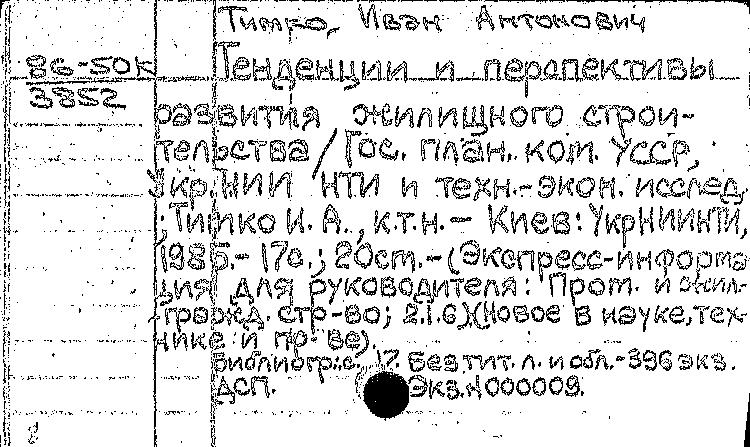 Тимко, Иван Антонович
86-50к
3852
Тенденции и перспективы
развития жилищного строи-
тельства / Гос. план. ком. УССР,
Укр.НИИ НТИ и техн.-экон. исслед.
; Тимко И. А., к.т.н. - Киев: УкрНИИНТИ,
1985. - 17с.; 20см. - (Экспресс-информа
ция для руководителя: Пром. и жил-
гражд. стр-во; 2.I.6)(Новое в науке, тех-
нике и пр-ве).
Библиогр.: с. 17. Без тит. л. и обл. - 396 экз.
ДСП. Экз.N000009.